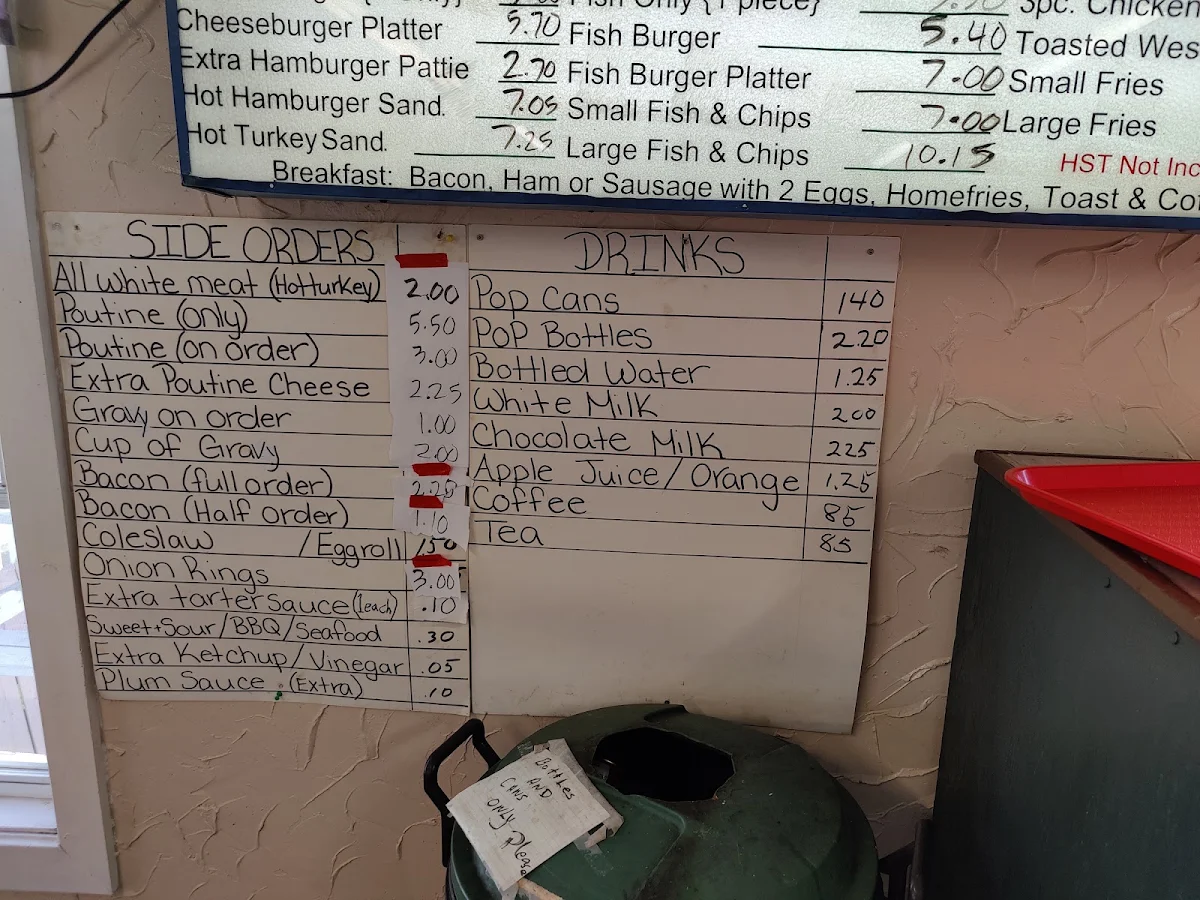 Fish Only {1 piece} 3pc. Chicken
Cheeseburger Platter 5.70 Fish Burger 5.40 Toasted Wes
Extra Hamburger Pattie 2.70 Fish Burger Platter 7.00 Small Fries
Hot Hamburger Sand. 7.05 Small Fish & Chips 7.00 Large Fries
Hot Turkey Sand. 7.25 Large Fish & Chips 10.15 HST Not Inc
Breakfast: Bacon, Ham or Sausage with 2 Eggs, Homefries, Toast & Cof
SIDE ORDERS
All white meat (Hotturkey) 2.00
Poutine (only) 5.50
Poutine (on order) 3.00
Extra Poutine Cheese 2.25
Gravy on order 1.00
Cup of Gravy 2.00
Bacon (full order) 2.25
Bacon (Half order) 1.10
Coleslaw / Eggroll 1.50
Onion Rings 3.00
Extra tarter sauce (1each) .10
Sweet+Sour/BBQ/Seafood .30
Extra Ketchup/Vinegar .05
Plum Sauce (Extra) .10
DRINKS
Pop Cans 140
Pop Bottles 2.20
Bottled Water 1.25
White Milk 200
Chocolate Milk 225
Apple Juice/Orange 1.25
Coffee 85
Tea 85
Bottles
AND
CANS
ONLY please